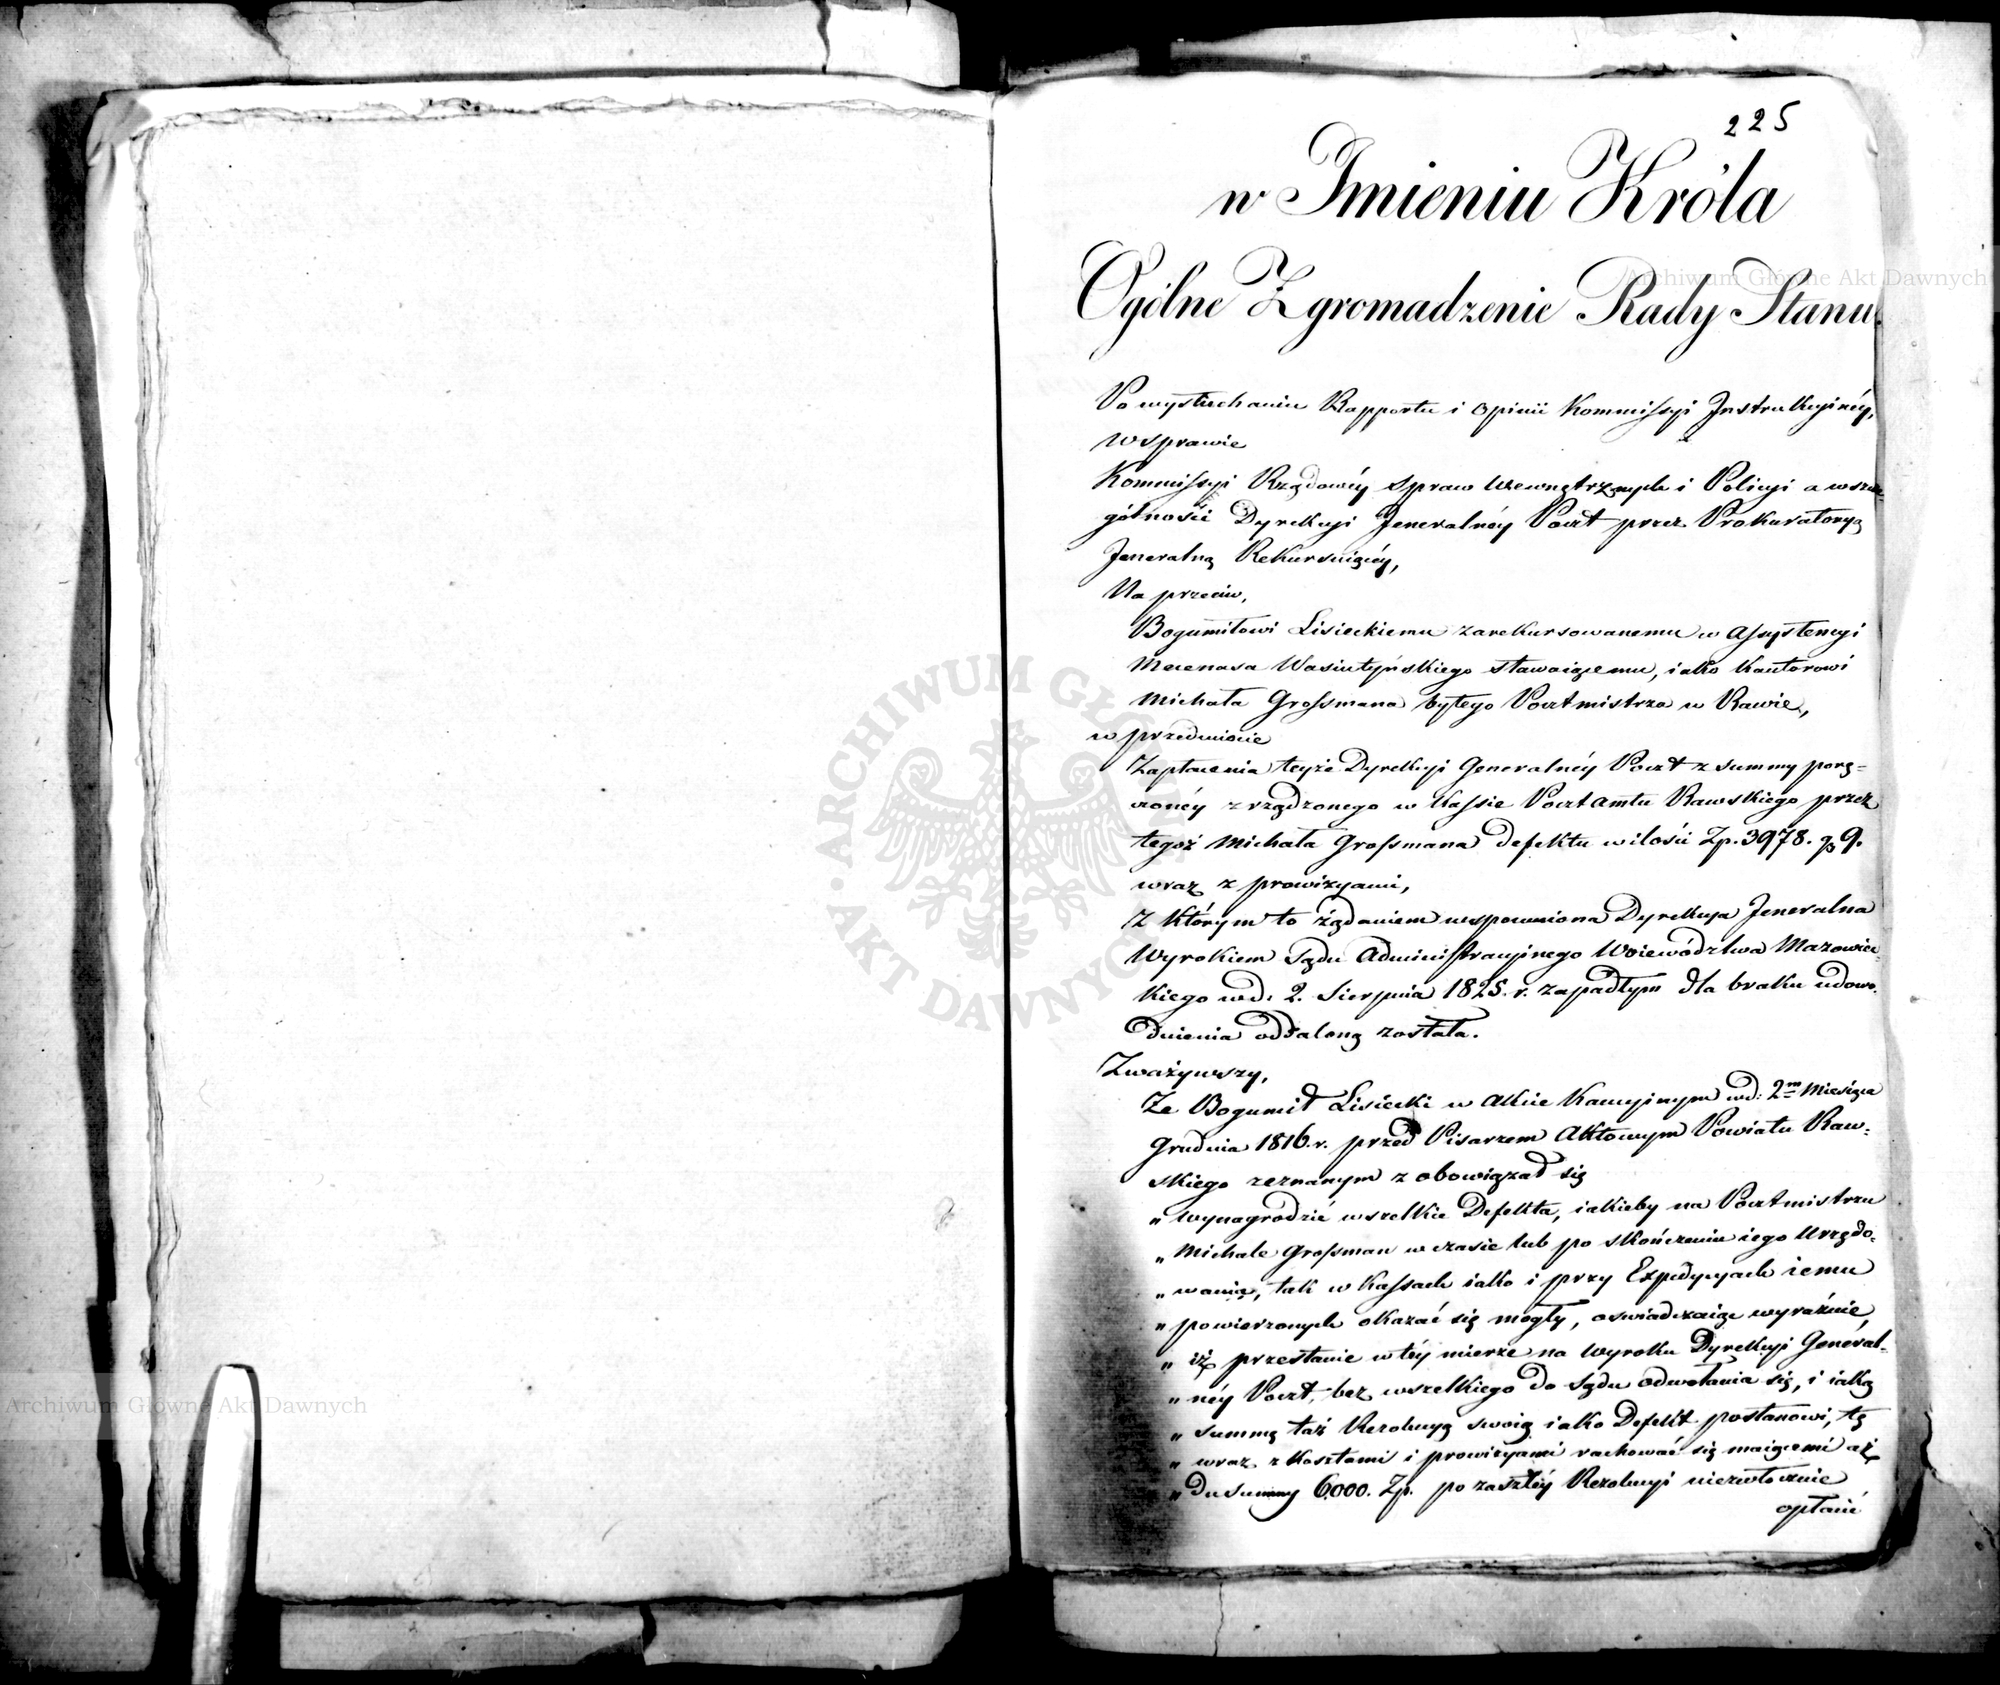 225
w Imieniu Króla
Ogólne Zgromadzenie Rady Stanu.
Po wysłuchaniu Rapportu i opinii Kommissyi Instrukcyinéy,
w sprawie
Kommissyi Rządowéy Spraw Wewnętrznych i Policyi a wszcze-
gólności Dyrekcyi Jeneralnéy Poczt przez Prokuratoryą
Jeneralną Rekursuiącéy,
Na przeciw,
Bogumiłowi Lisieckiemu zarekursowanemu w Assystencyi
Mecenasa Wasiutyńskiego stawaiącemu, iako Kautorowi
Michała Grossmana byłego Pocztmistrza w Rawie,
w przedmiocie
Zapłacenia teyże Dyrekcyi Generalnéy Poczt z summy porę-
czonéy zrządzonego w Kassie Pocztamtu Rawskiego przez
tegoż Michała Grossmana defektu w ilości Zp. 3978. gr 9.
wraz z prowizyami,
Z którym to żądaniem wspomniona Dyrekcya Jeneralna
Wyrokiem Sądu Administracyinego Woiewództwa Mazowiec-
kiego w d. 2. Sierpnia 1825. r. zapadłym dla braku udowo-
dnienia oddaloną została.
Zważywszy,
Że Bogumił Lisiecki w Akcie Kaucyinym w d. 2m Miesiąca
Grudnia 1816. r. przed Pisarzem Aktowym Powiatu Raw-
skiego zeznanym zobowiązał się
„ wynagrodzić wszelkie Defekta, iakieby na Pocztmistrzu
„ Michale Grossman w czasie lub po skończeniu iego Urzędo-
„ wania, tak w Kassach iako i przy Expedycyach iemu
„ powierzonych okazać się mogły, oswiadczaiąc wyraźnie,
„ iż przestanie w téy mierze na wyroku Dyrekcyi General-
„ néy Poczt, bez wszelkiego do Sądu odwołania się, i iaką
„ summę taż Rezolucyą swoią iako Defekt postanowi, tę
„ wraz z kosztami i prowizyami rachować się maiącemi aż
„ do summy 6000. Zp. po zaszłéy Rezolucyi niezwłocznie
opłacić
Archiwum Główne Akt Dawnych
Archiwum Główne Akt Dawnych
ARCHIWUM GŁÓWNE • AKT DAWNYCH •